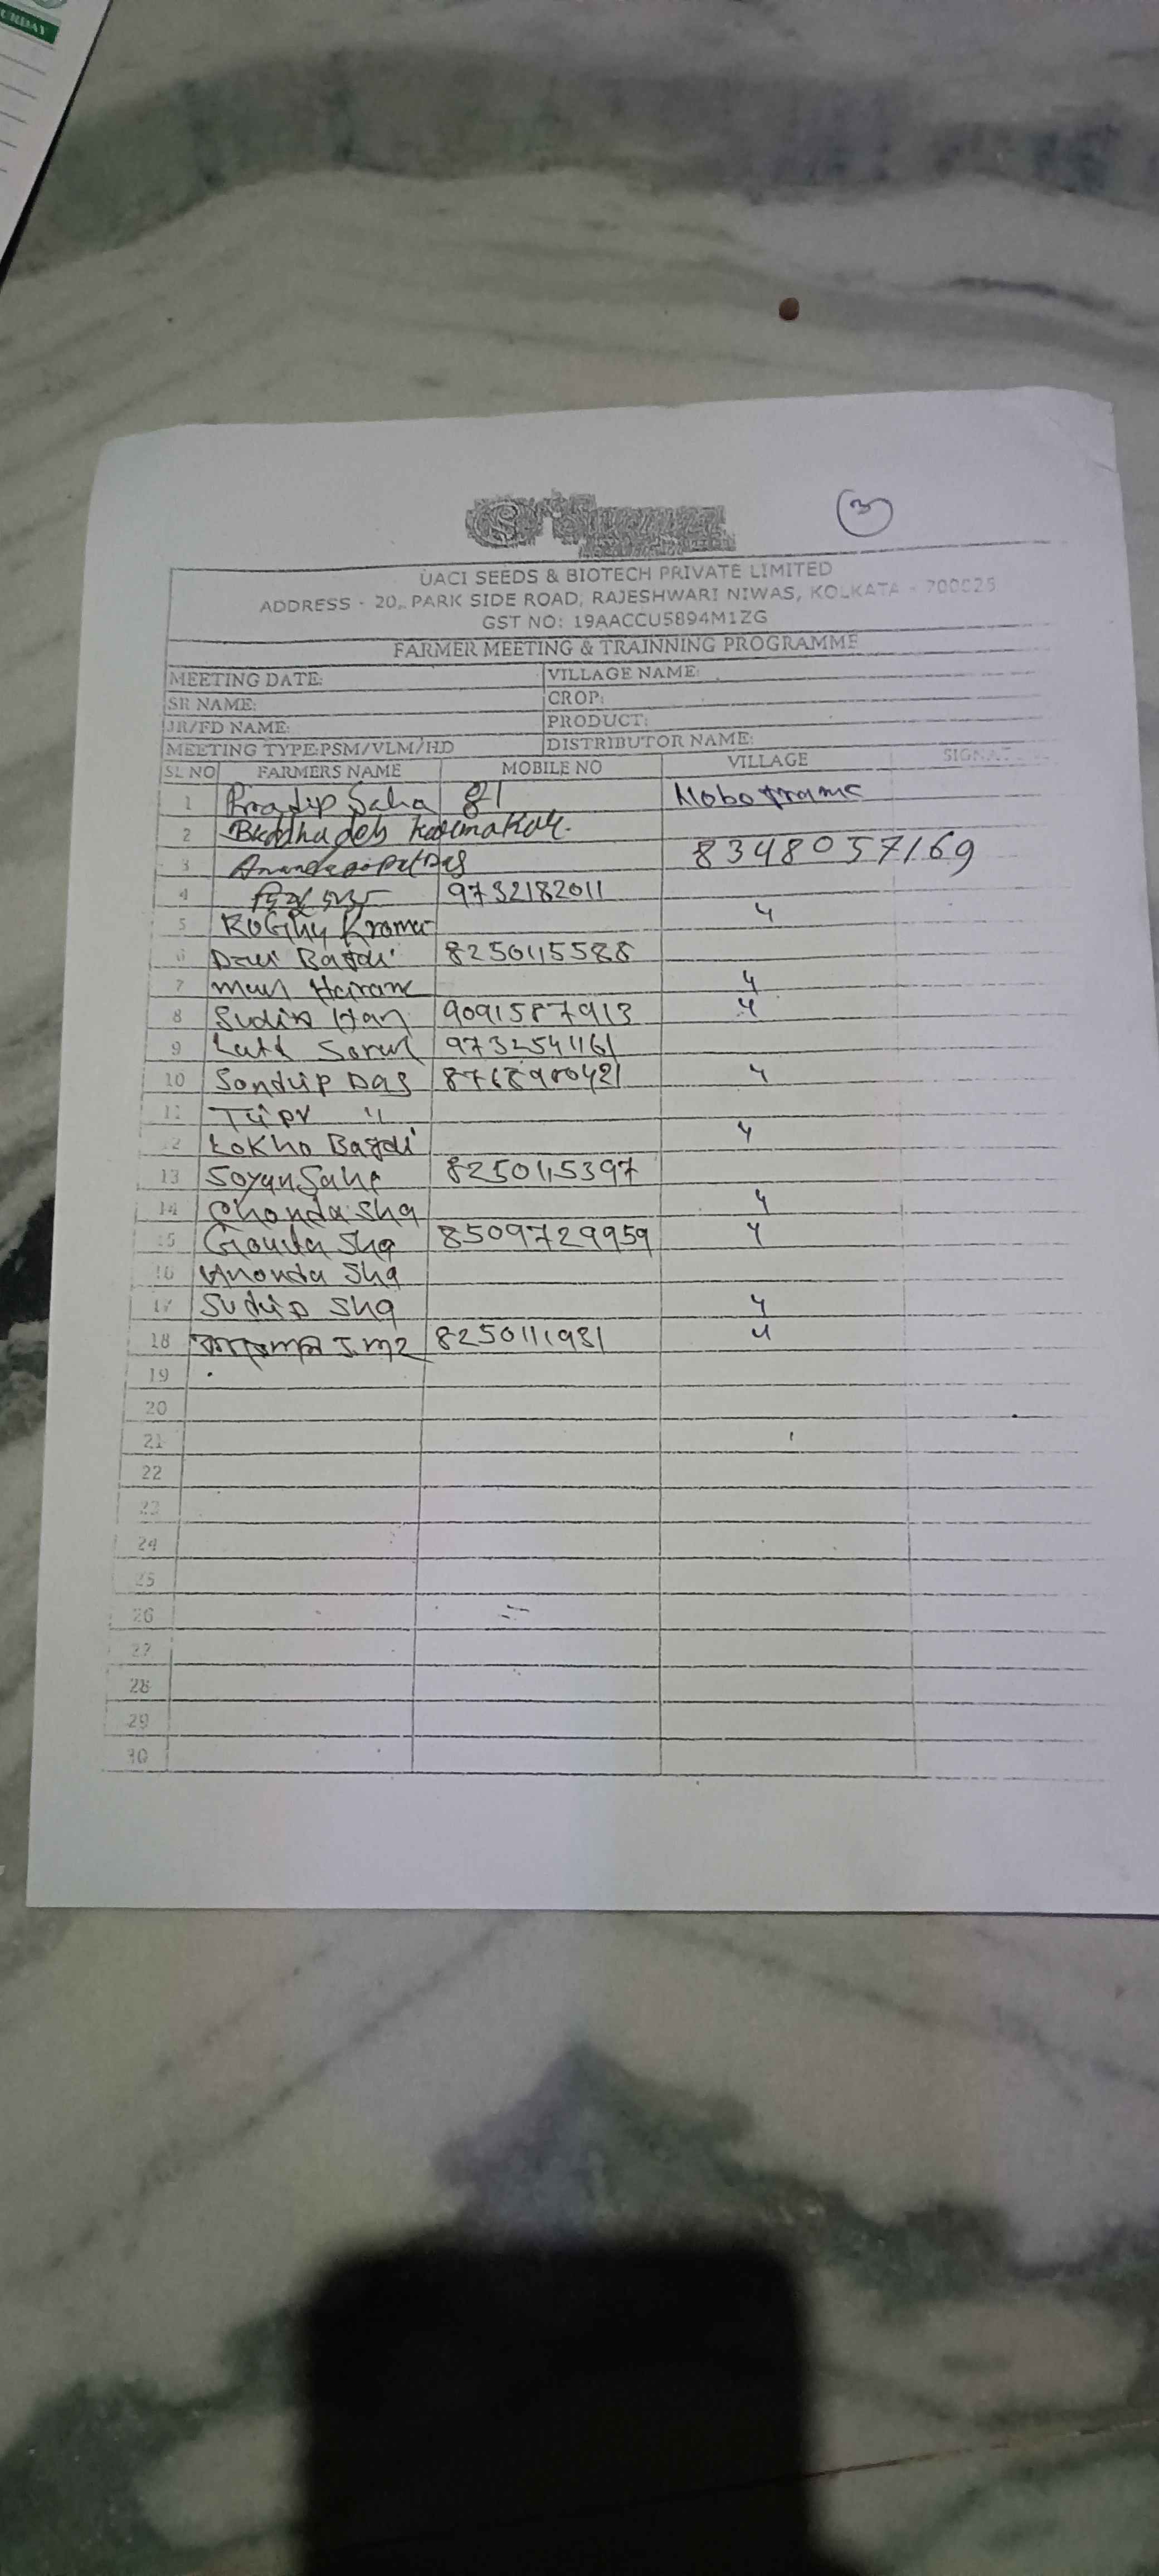 URDAY
3
UACI SEEDS & BIOTECH PRIVATE LIMITED
ADDRESS - 20, PARK SIDE ROAD, RAJESHWARI NIWAS, KOLKATA - 700025
GST NO: 19AACCU5894M1ZG
FARMER MEETING & TRAINNING PROGRAMME
MEETING DATE: VILLAGE NAME:
SR NAME: CROP:
JR/FD NAME: PRODUCT:
MEETING TYPE:PSM/VLM/HD DISTRIBUTOR NAME:
SL NO FARMERS NAME MOBILE NO VILLAGE SIGNAT
1 Pradip Saha 81
2 Buddhadeb Karmakar.
3 Anandagopal Das 8348057169
4 9732182011
5 Roghu 4
6 Bagdi 8250115588
7 4
8 9091587913 4
9 9732541161
10 Sandip Das 8768900421 4
11 "
12 Lokho Bagdi 4
13 Soyan Saha 8250115397
14 Chonda Sha 4
15 Gouda Sha 8509729959 4
16 Ononda Sha
17 Sudip Sha 4
18 8250111981 "
19
20
21
22
23
24
25
26
27
28
29
30